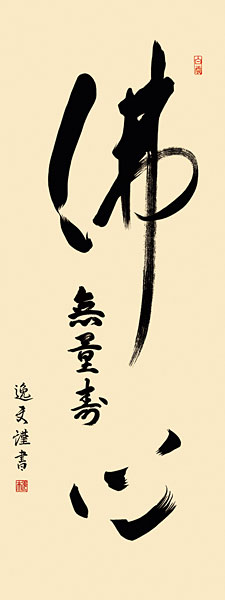 佛心
無量壽
逸文謹書